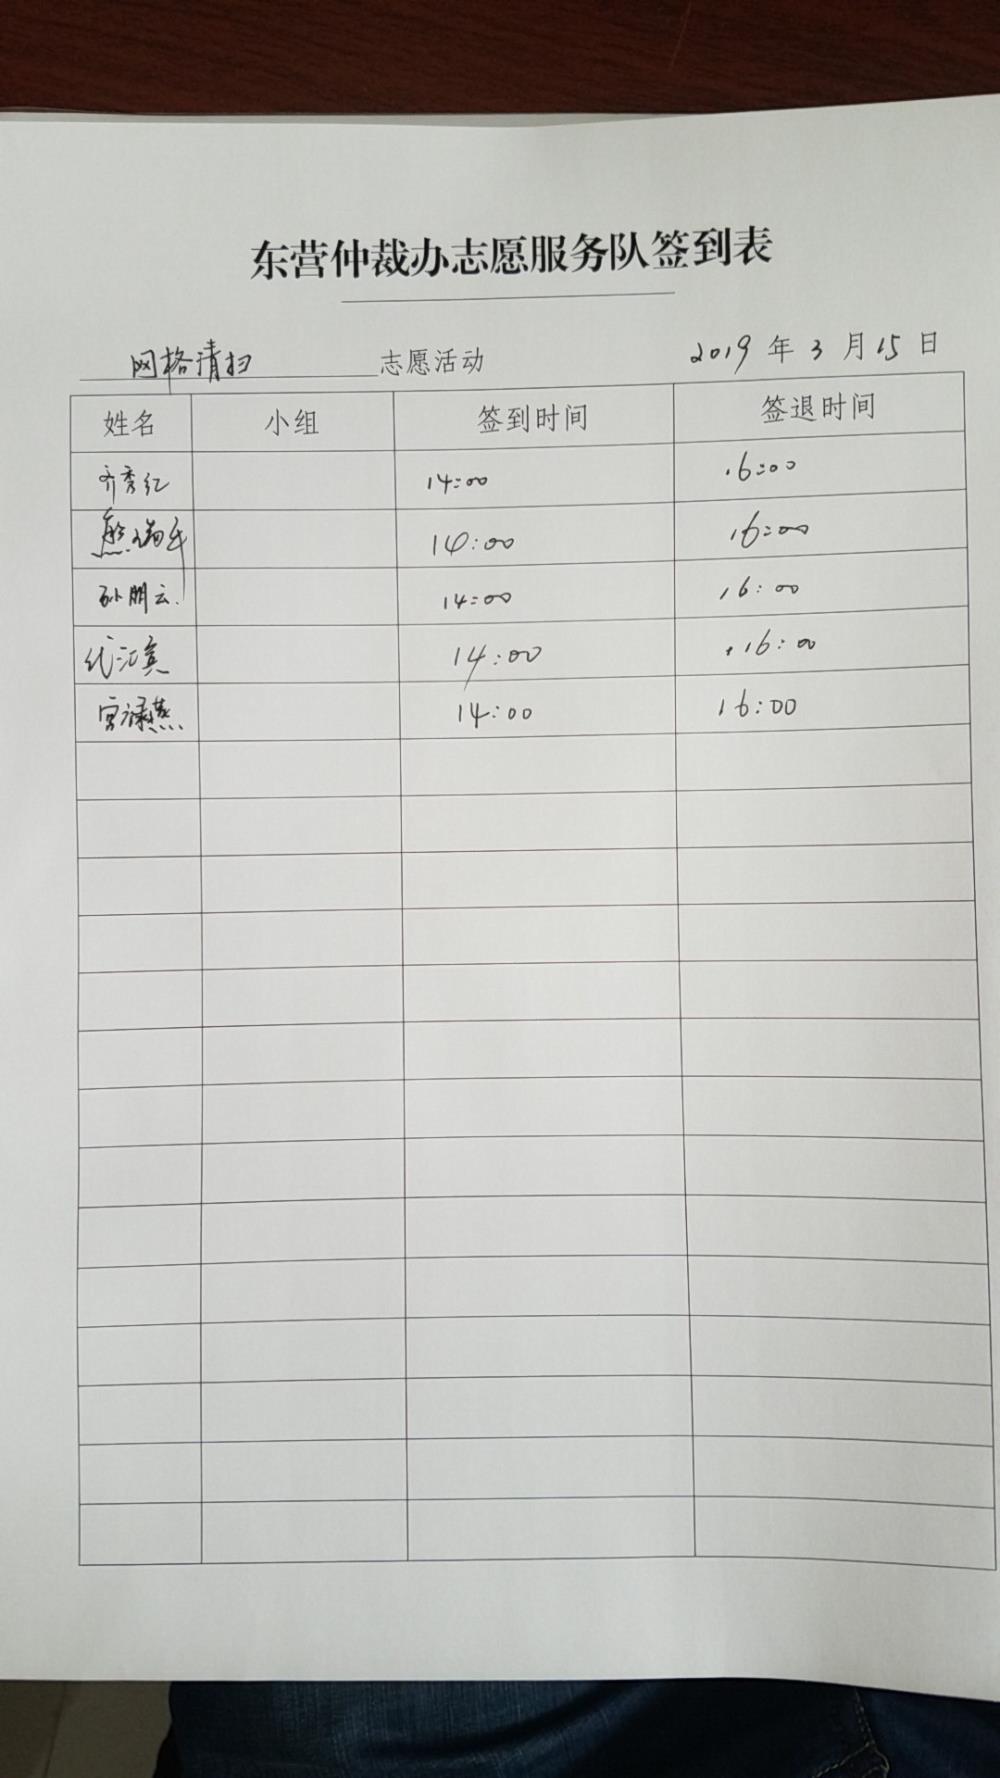 东营仲裁办志愿服务队签到表
网格清扫 志愿活动 2019 年 3 月 15 日
姓名 小组 签到时间 签退时间
齐秀红 14:00 16:00
熊瑞 14:00 16:00
孙朋云 14:00 16:00
代江宾 14:00 16:00
宫禄燕 14:00 16:00